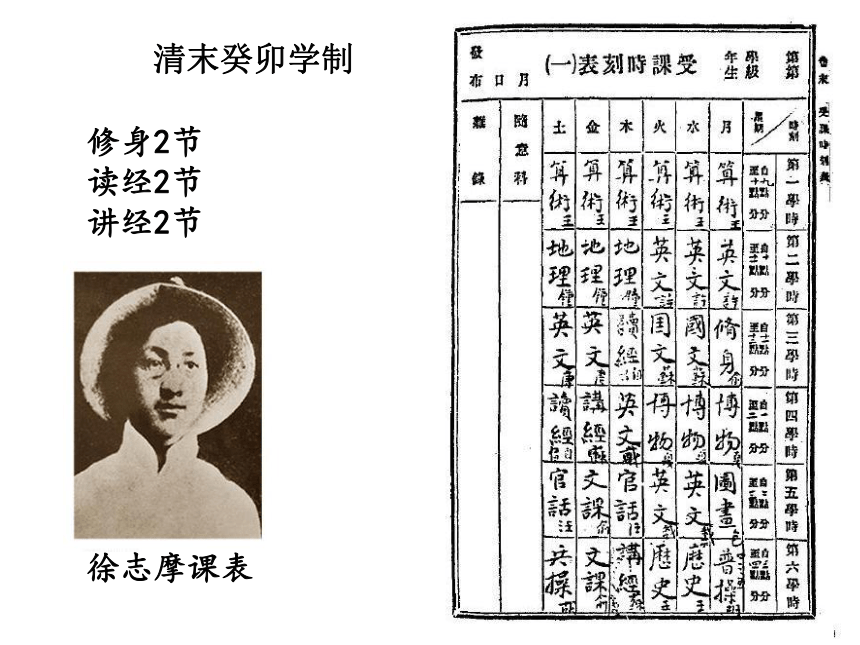 清末癸卯学制
修身2节
读经2节
讲经2节
徐志摩课表
受課時刻表(一)
第 學級
第 年生
月 日 發布
時刻 星期 月 水 火 木 金 土 隨意科 雜錄
第一學時 算術王 算術王 算術王 算術王 算術王 算術王
第二學時 英文許 英文許 英文許 地理鍾 地理鍾 地理鍾
第三學時 修身俞 國文蘇 国文蘇 讀經 英文 英文
第四學時 博物 博物 博物 英文戴 講經 讀經
第五學時 圖畫 英文戴 英文戴 官話汪 文課俞 官話汪
第六學時 普操 歷史王 歷史王 講經 文課俞 兵操